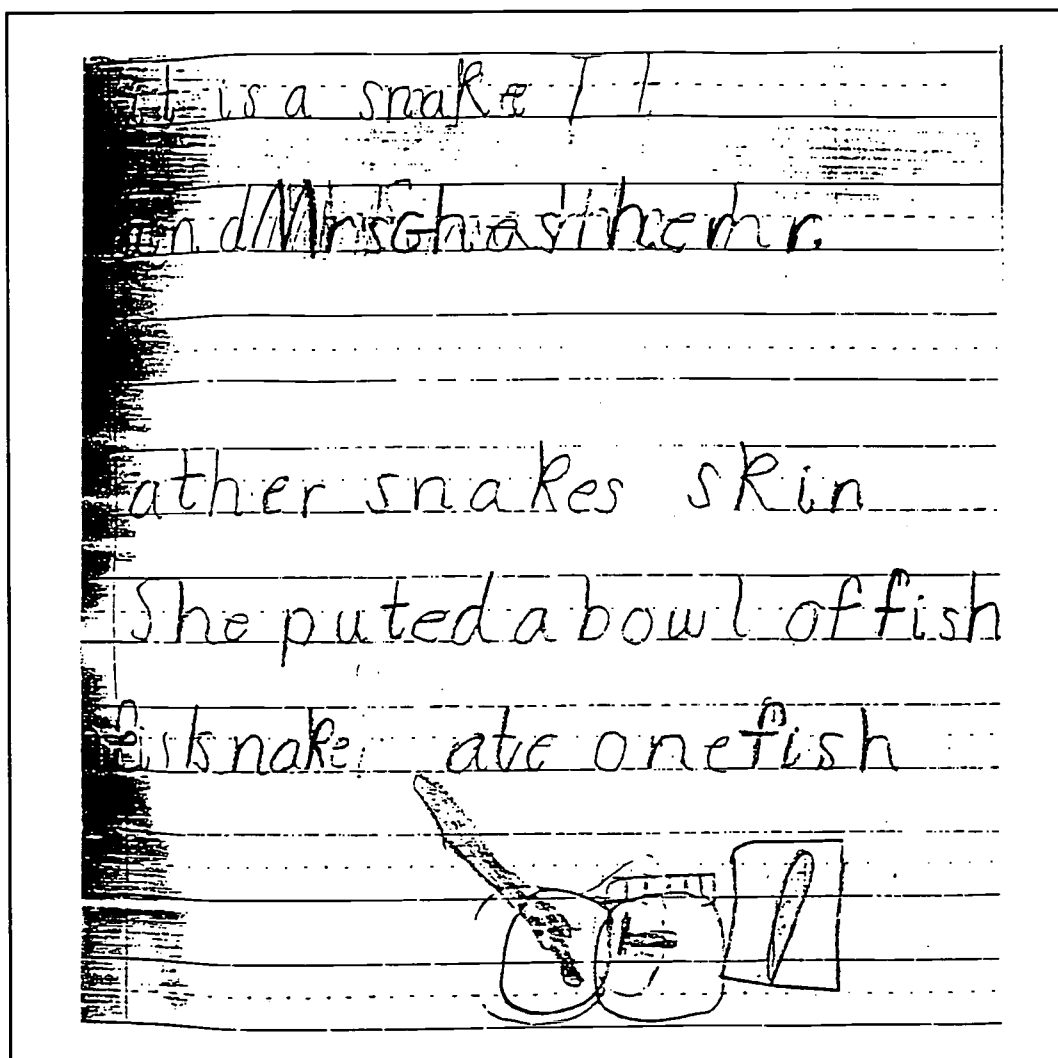 it is a snake It
and Mrs G has
ather snakes skin
She puted a bowl of fish
snake ate one fish